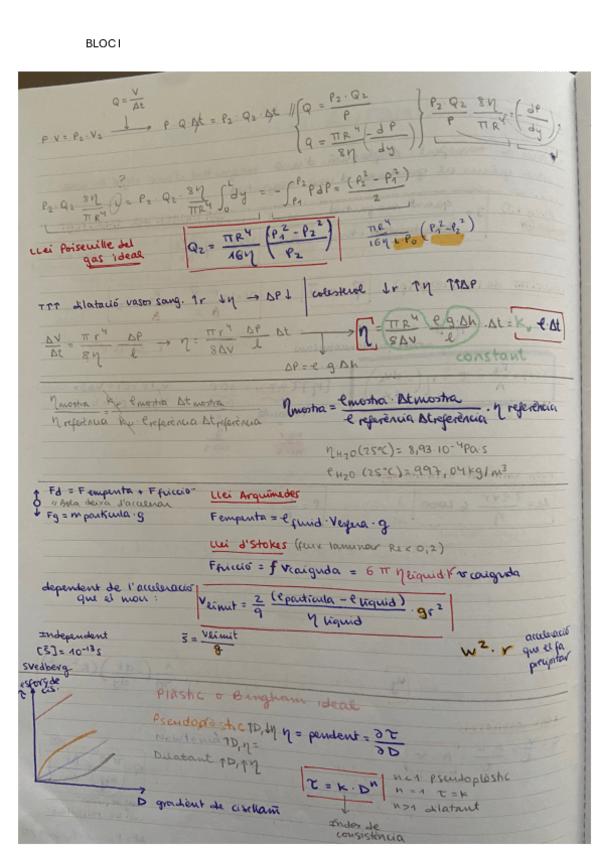 BLOC I
Q = V/Δt
P·V = P₂·V₂ → P·Q·Δt = P₂·Q₂·Δt // { Q = P₂·Q₂/P
Q = πR⁴/8η (-dP/dy) } P₂·Q₂/P · 8η/πR⁴ = (-dP/dy)
?
P₂·Q₂ 8η/πR⁴ = P₂·Q₂· 8η/πR⁴ ∫₀ᴸ dy = -∫ PdP = (P₂² - P₁²)/2
Llei Poiseuille del
gas ideal
Q₂ = πR⁴/16η (P₁² - P₂² / P₂)
πR⁴/16η L P₀ (P₁² - P₂²)
↑↑↑ dilatació vasos sang. ↑r ↓η → ΔP↓ | colesterol ↓r ↑η ↑↑ΔP
ΔV/Δt = πr⁴/8η ΔP/l → η = πr⁴/8ΔV ΔP/l Δt → η = πR⁴/8ΔV ρgΔh/l · Δt = Kᵥ ρ·Δt
ΔP = ρ·g Δh
constant
η mostra / η referència = Kᵥ ρ mostra Δt mostra / Kᵥ ρ referència Δt referència
η mostra = ρ mostra · Δt mostra / ρ referència Δt referència · η referència
η H₂O (25ºC) = 8,93·10⁻⁴ Pa·s
ρ H₂O (25ºC) = 997,04 kg/m³
Fd = F empenta + F fricció
Fg = m partícula · g
Llei Arquímedes
F empenta = ρ fluid · V esfera · g
Llei d'Stokes (flux laminar Re < 0,2)
F fricció = f v caiguda = 6 π η líquid r v caiguda
dependent de l'acceleració
que el mou:
V límit = 2/9 (ρ partícula - ρ líquid)/η líquid · g r²
Independent
[s̄] = 10⁻¹³ s
Svedberg
s̄ = V límit/g
w²·r
acceleració
que el fa
precipitar
esforç de
cis.
τ
Plàstic o Bingham ideal
Pseudoplàstic ↑D, ↓η
η = pendent = ∂τ/∂D
Newtonià ↑D, η =
Dilatant ↑D, ↑η
τ = K · Dⁿ
n<1 pseudoplàstic
n = 1 τ = K
n>1 dilatant
D gradient de cisellam
Índex de
consistència